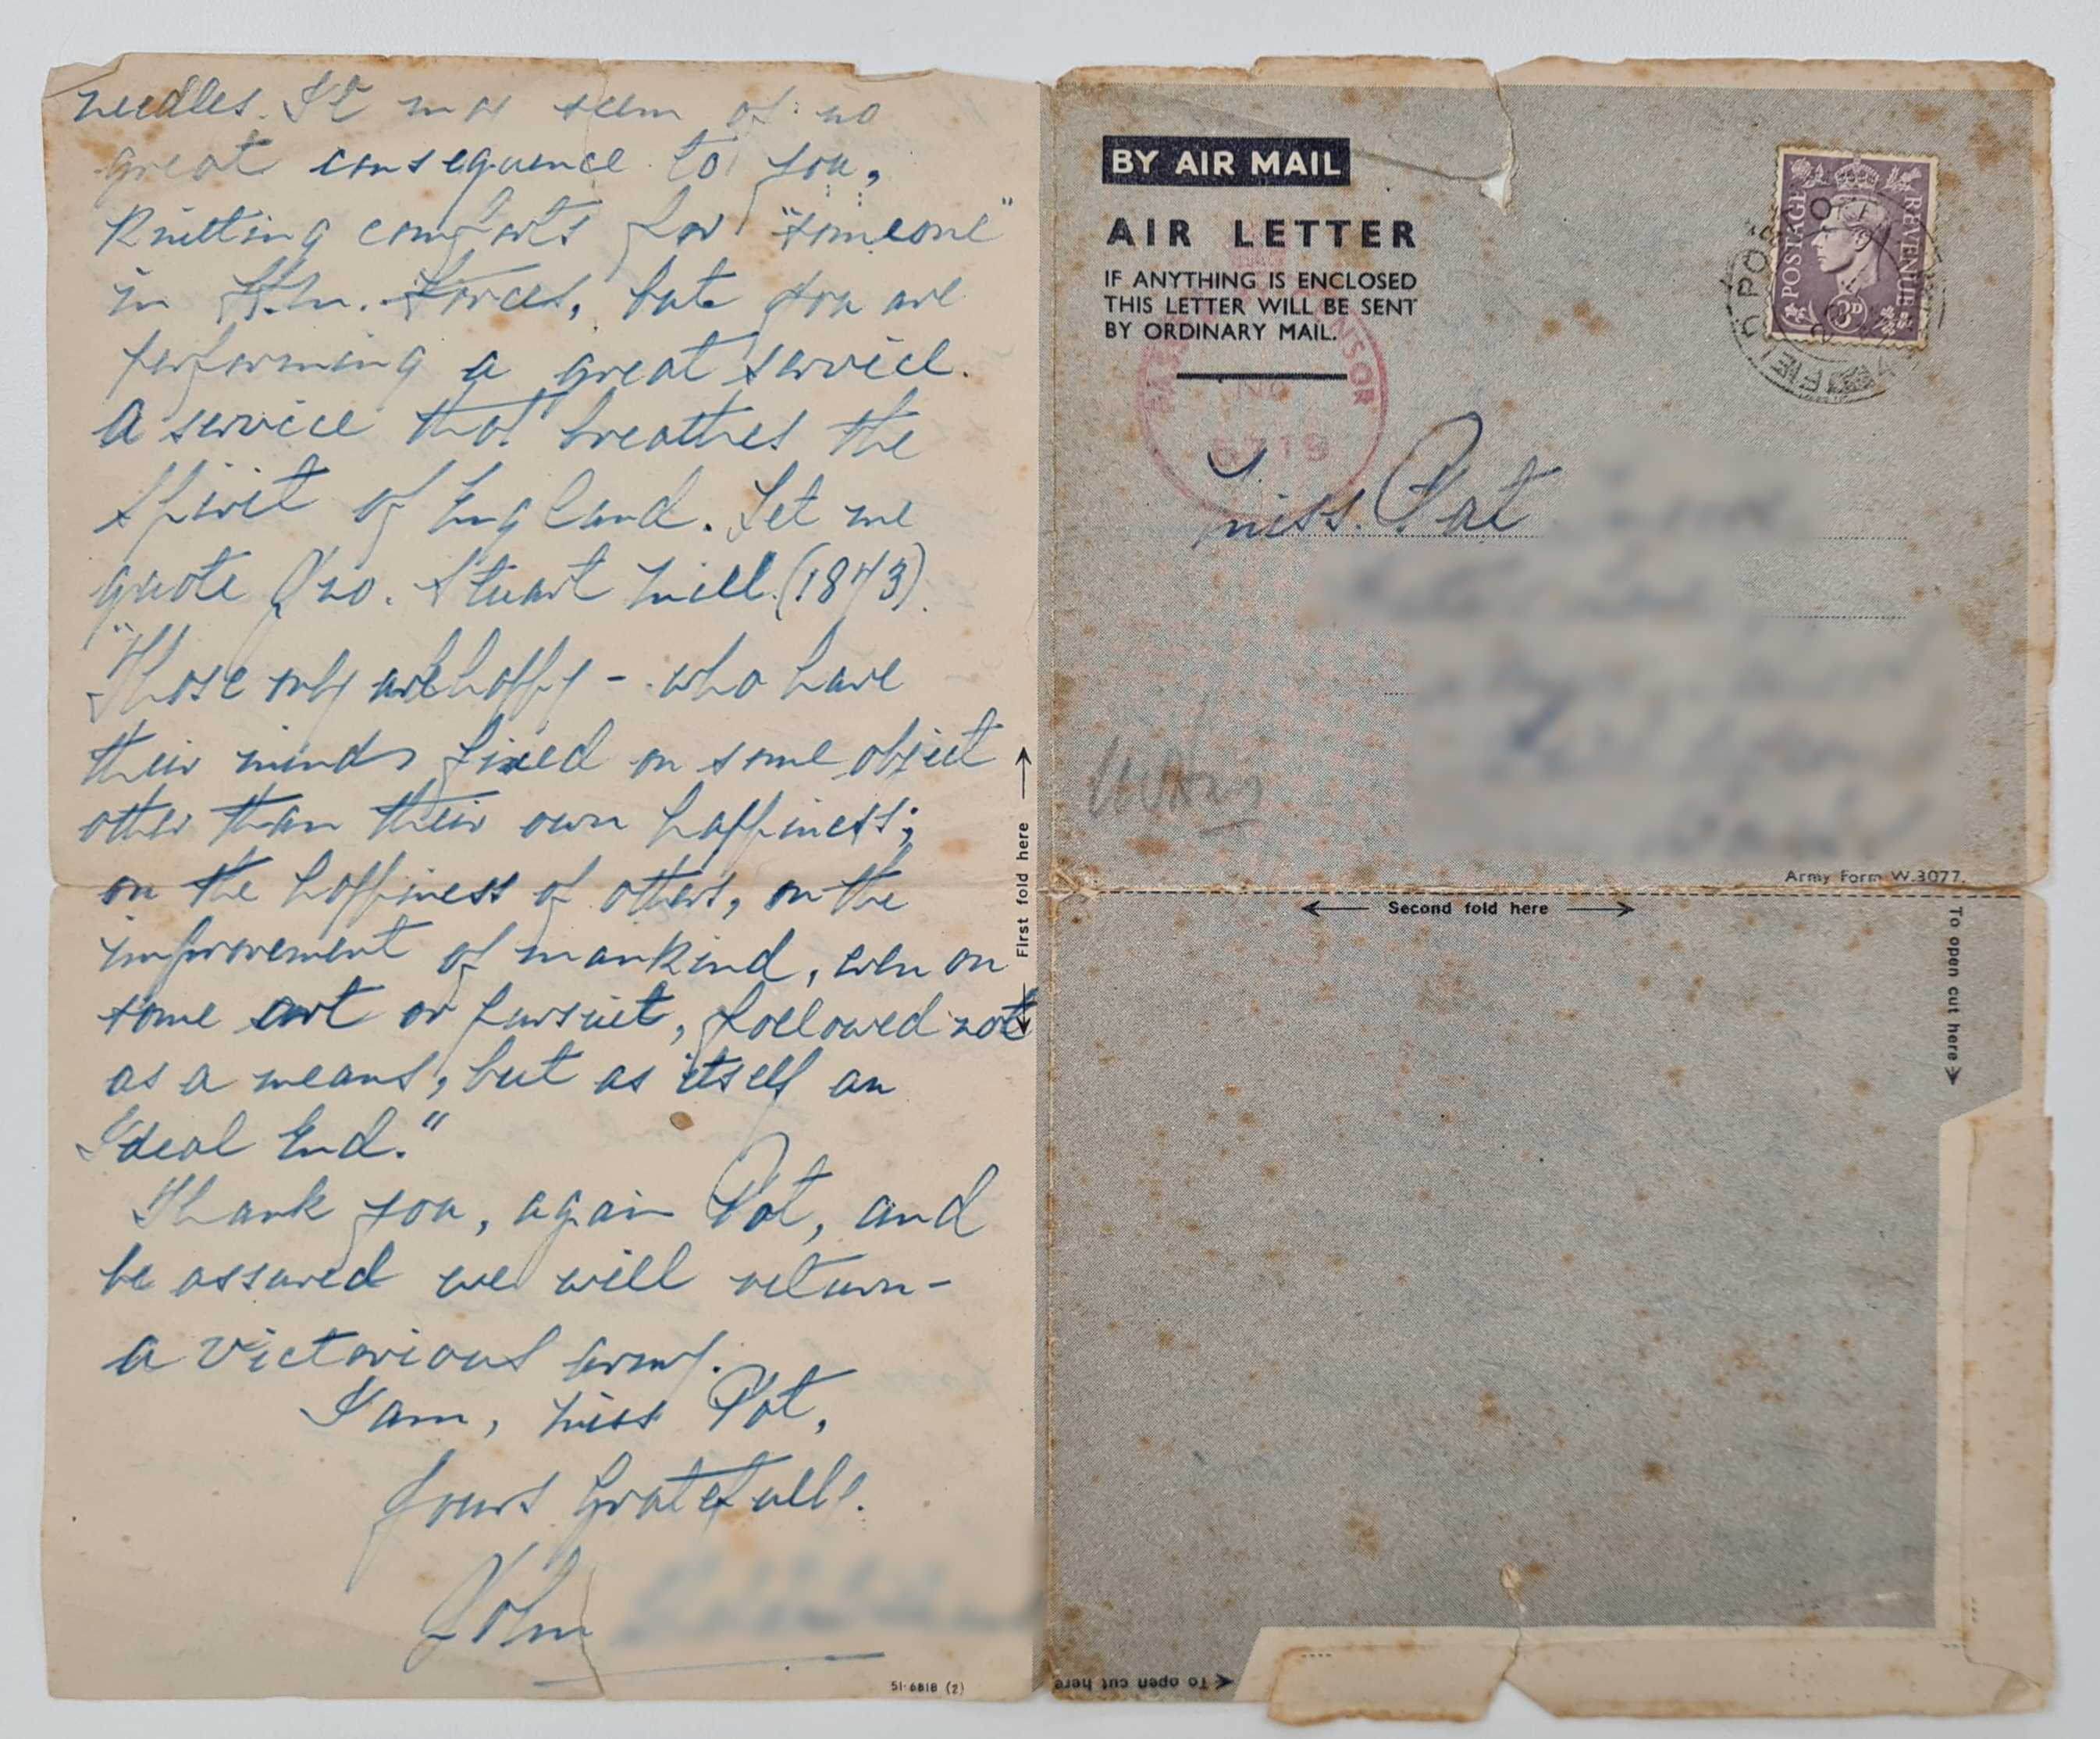 needles. It may seem of no
great consequence to you,
Knitting comforts for "someone"
in H.M. Forces, but you are
performing a great service.
A service that breathes the
Spirit of England. Let me
quote Jno. Stuart Mill (1873).
"Those only are happy - who have
their minds fixed on some object
other than their own happiness;
on the happiness of others, on the
improvement of mankind, even on
some art or pursuit, followed not
as a means, but as itself an
Ideal End."
Thank you, again Pat, and
be assured we will return-
a victorious army.
I am, Miss Pat,
Yours Gratefully.
John
51-6818 (2)
First fold here
BY AIR MAIL
AIR LETTER
IF ANYTHING IS ENCLOSED
THIS LETTER WILL BE SENT
BY ORDINARY MAIL.
POSTAGE
REVENUE
3D
FIELD POST
CENSOR
No
Miss. Pat
Army Form W.3077.
Second fold here
To open cut here
To open cut here